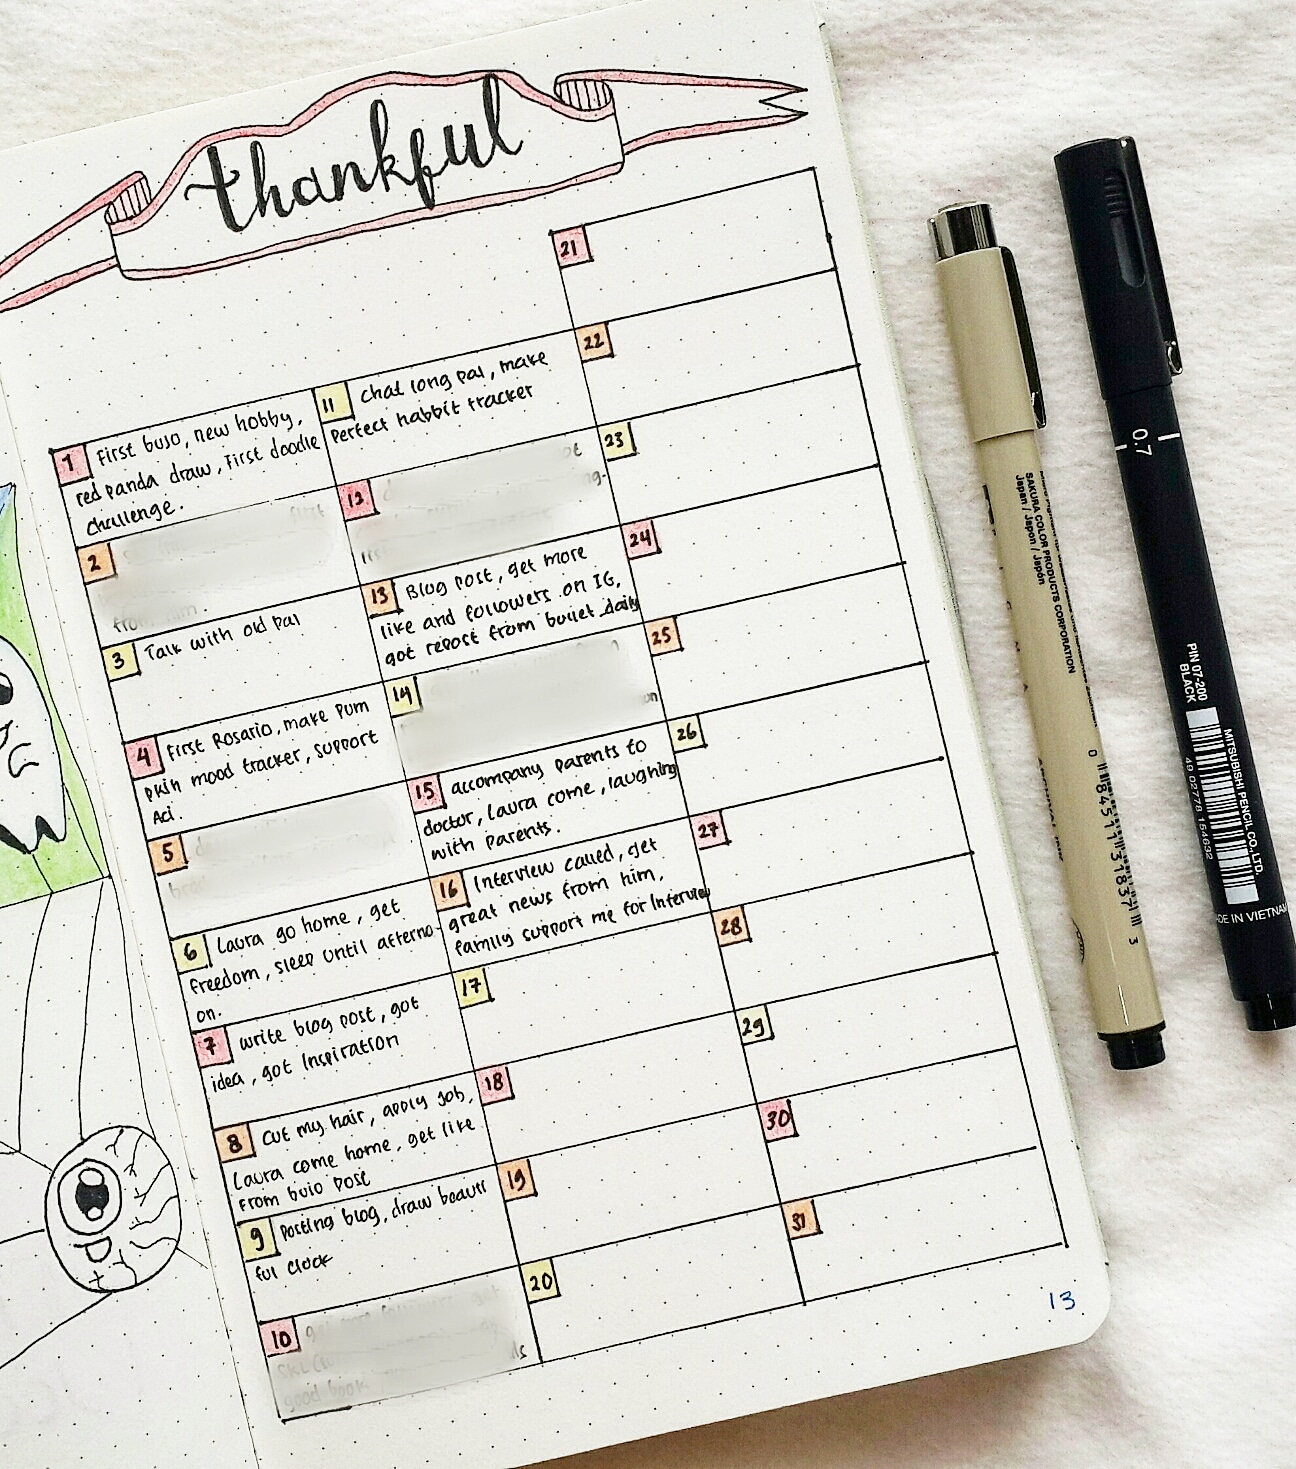 thankful
1 First bujo, new hobby,
red panda draw, first doodle
challenge.
2
3 Talk with old pal
4 First Rosario, make pum
pkin mood tracker, support
Aci.
5
6 Laura go home, get
freedom, sleep until afterno-
on.
7 write blog post, got
idea, got inspiration
8 Cut my hair, apply job,
Laura come home, get like
from bujo post
9 Posting blog, draw beauti
ful clock
10
good book
11 chat long pal, make
perfect habbit tracker
12
13 Blog post, get more
like and followers on IG,
got repost from bullet daily
14
15 accompany parents to
doctor, Laura come, laughing
with parents.
16 Interview called, get
great news from him,
family support me for Interview
17
18
19
20
21
22
23
24
25
26
27
28
29
30
31
13
SAKURA COLOR PRODUCTS CORPORATION
Japan / Japon / Japón
0 84511 31837 3
0.7
PIN 07-200
BLACK
MITSUBISHI PENCIL CO., LTD.
49 02778 154632
DE IN VIETNA